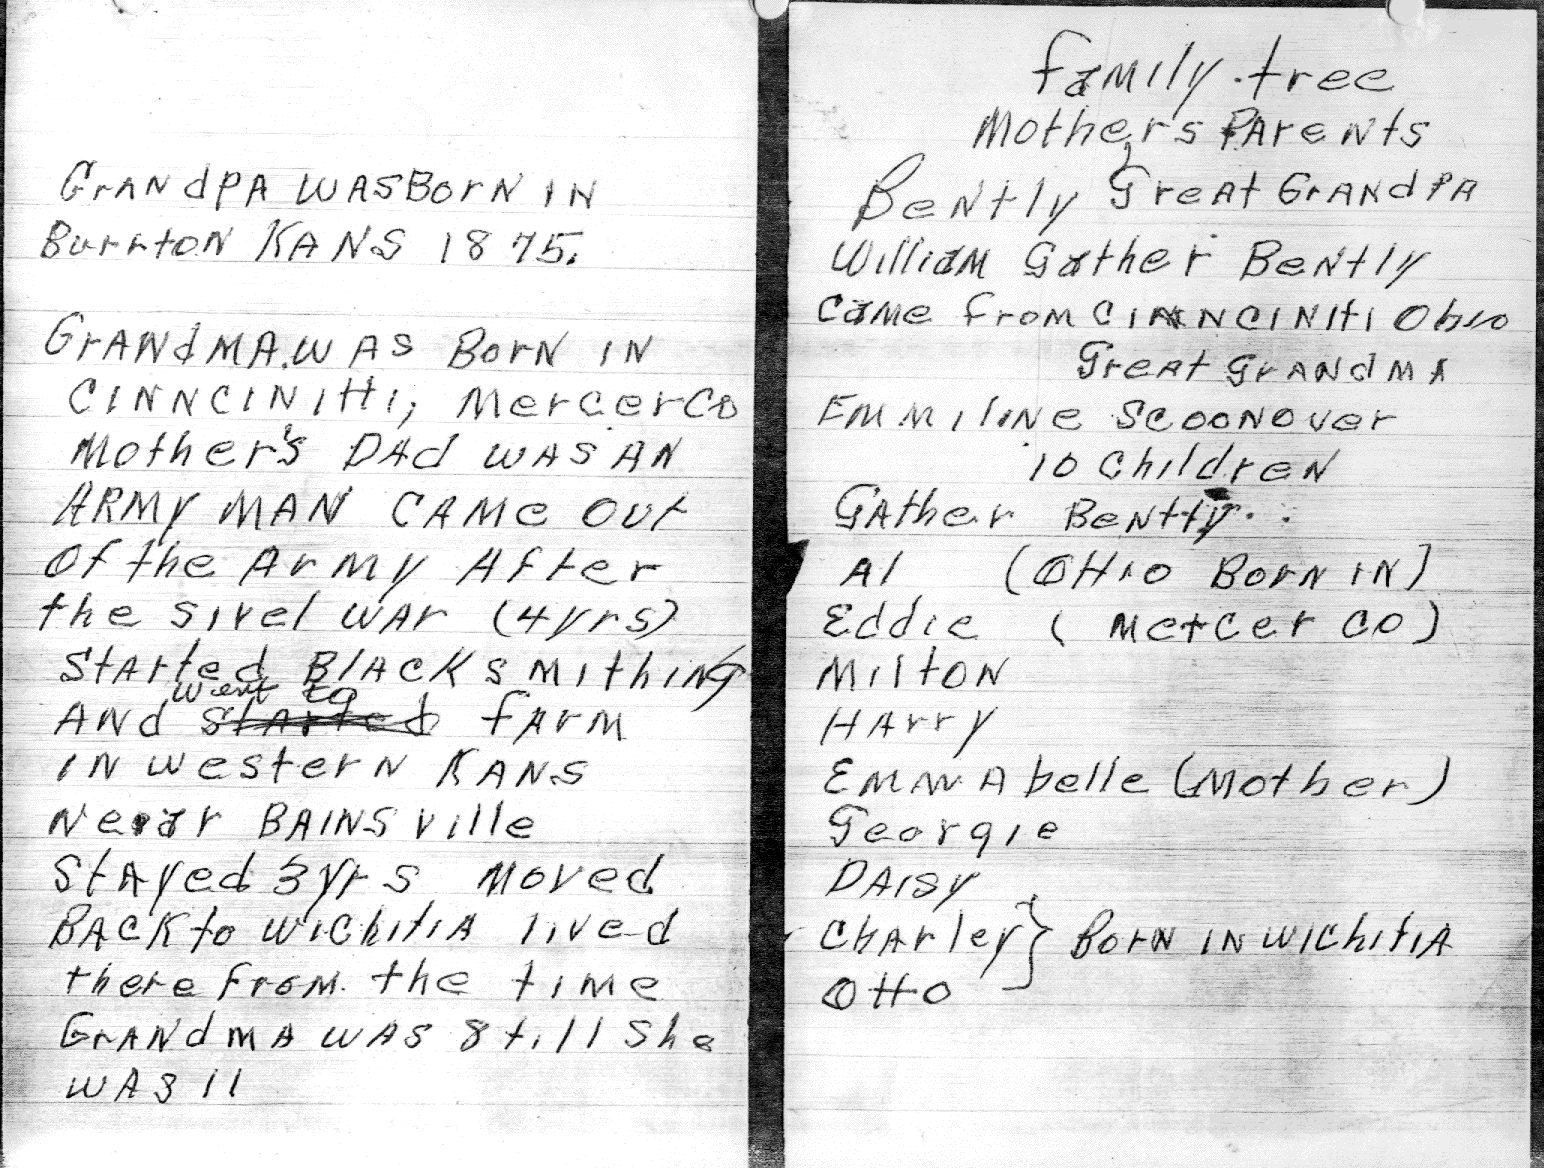 GrANdPA WAS BorN IN
BurrtoN KANS 1875.
GrANdMA. WAS BorN IN
CINNCINItti, MercerCo
Mother's DAd WAS AN
ARMy MAN CAMe Out
Of the Army After
the sivel WAr (4yrs)
StArted BlAcksmithiNg
ANd went to fArm
IN westerN KANS
Near BAINSville
StAyed 3yrs Moved
BAck to WichitiA lived
there from the time
GrANdmA WAS 8 till she
WAS 11
family tree
Mothers PAreNts
BeNtly GreAt GrANdPA
William Gather BeNtly
Came from CINNCINItti Ohio
GreAt GrANdMA
EmmiliNe ScooNover
10 ChildreN
GAther BeNtly
Al (OHio BorN IN)
Eddie (Mercer Co)
MiltoN
HArry
EmmAbelle (Mother)
Georgie
DAisy
ChArley } BorN IN WichitiA
Otto